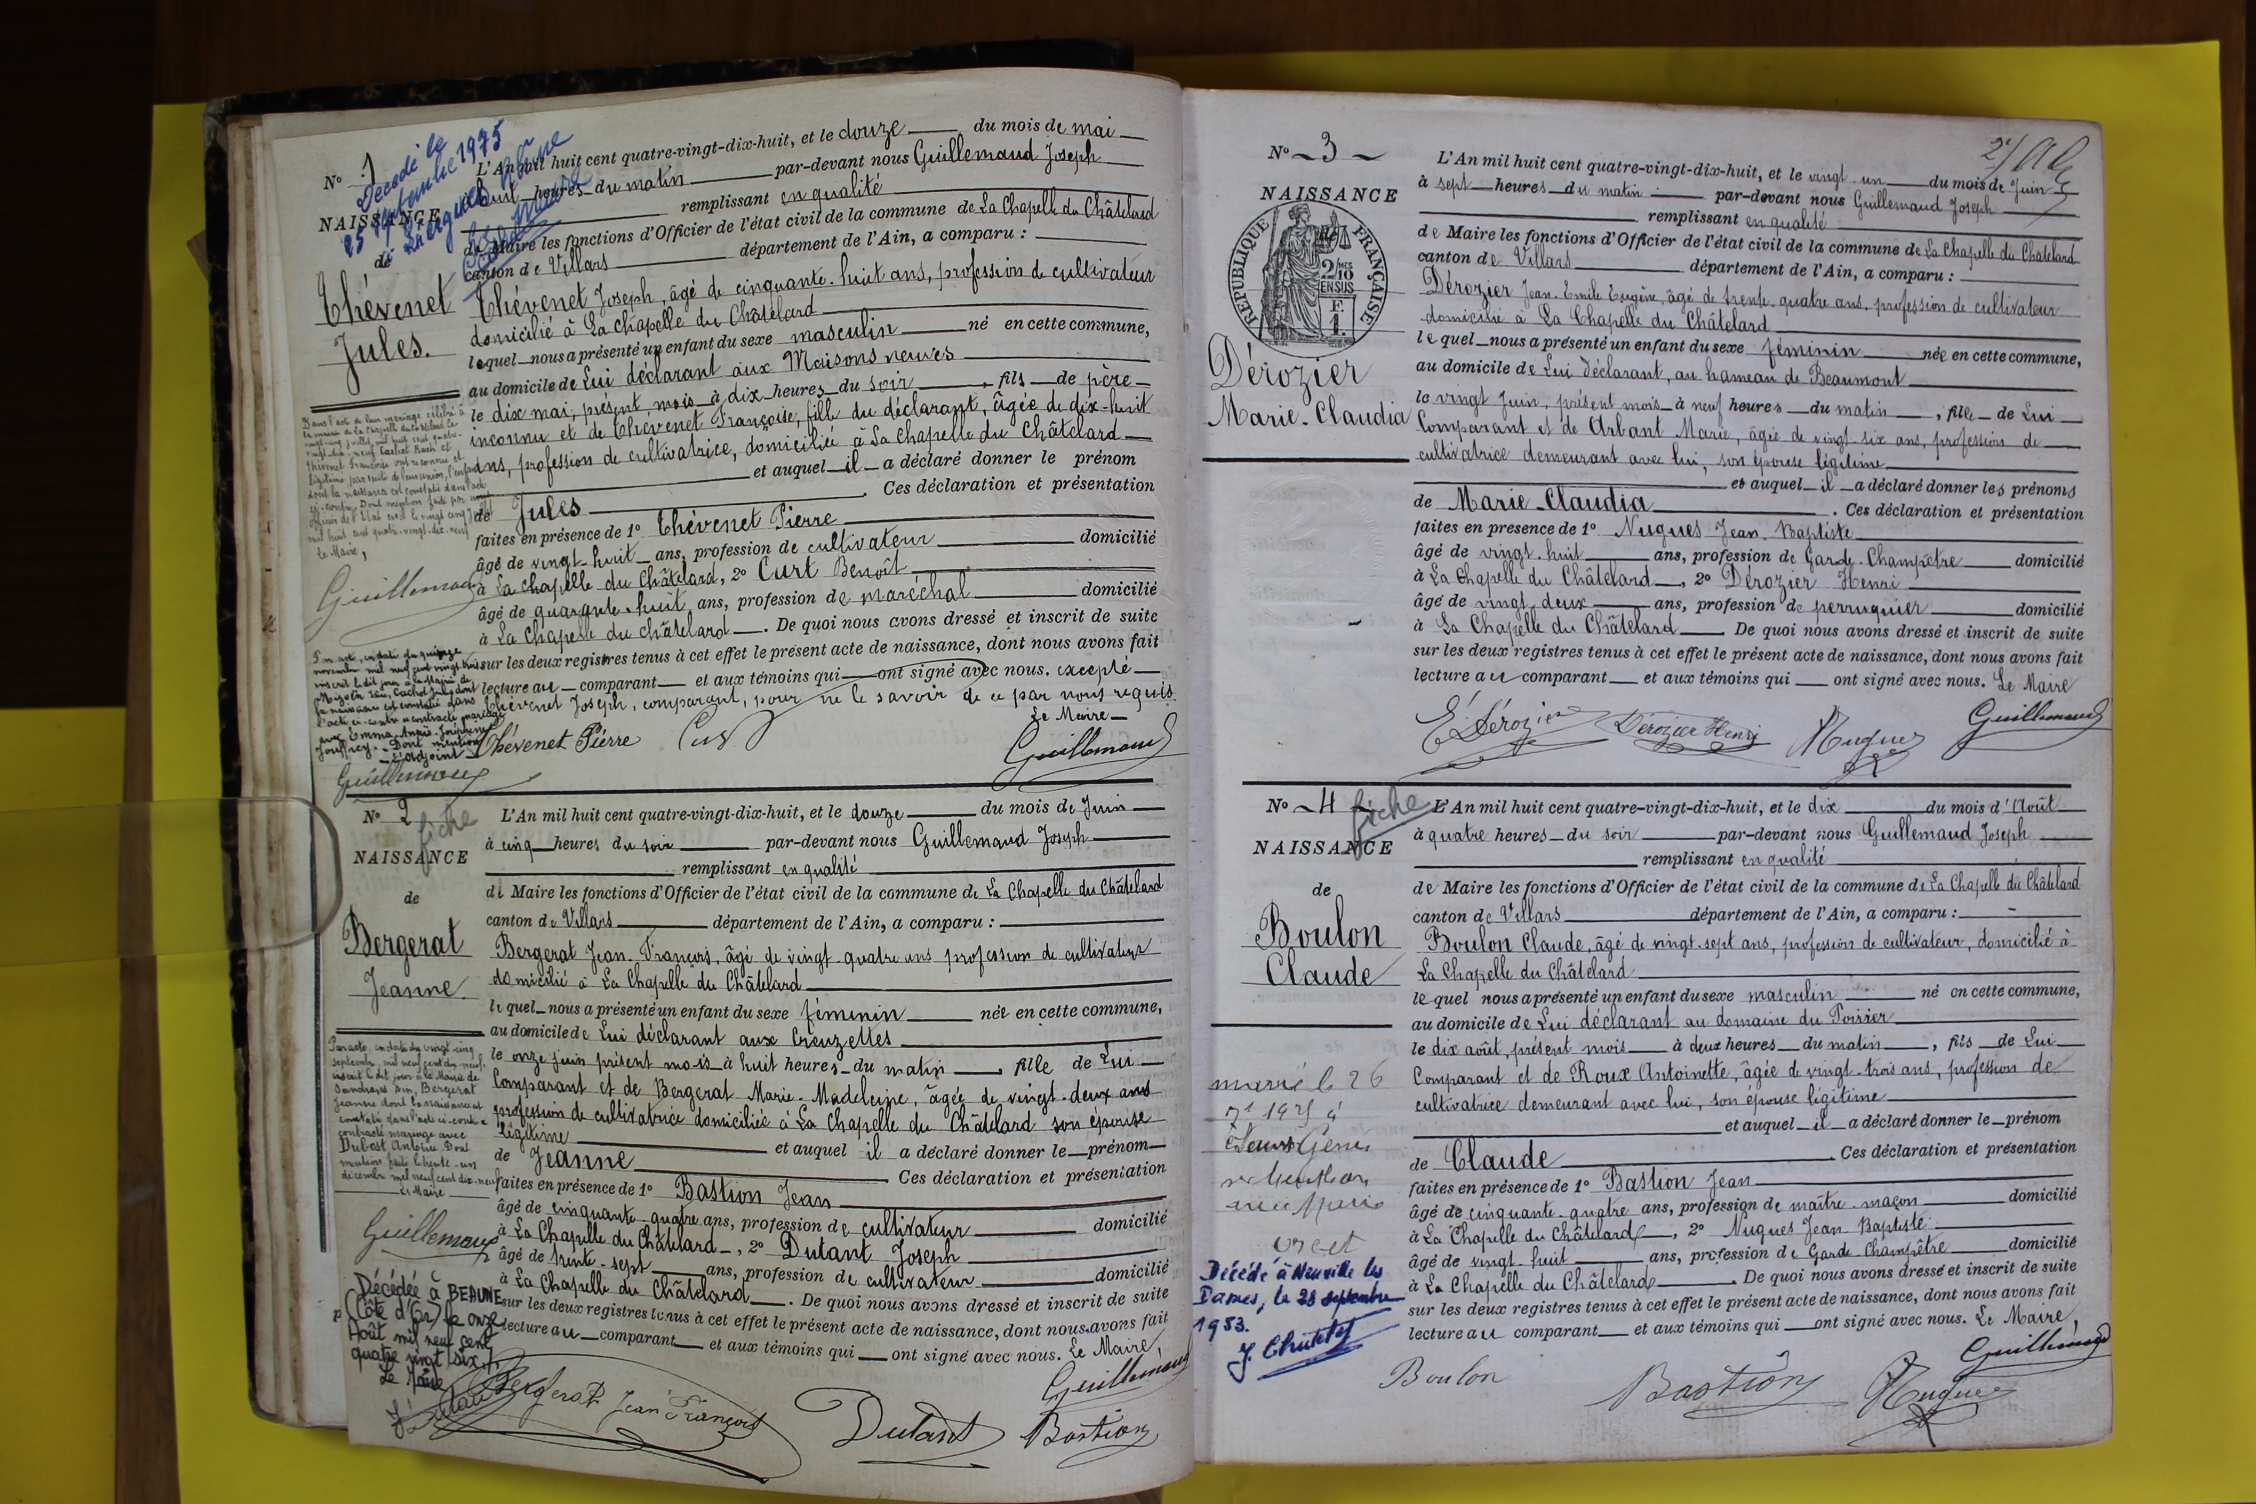 N° 1
NAISSANCE
de
Thévenet
Jules.
Décédé le
25 septembre 1975
L'An mil huit cent quatre-vingt-dix-huit, et le douze du mois de mai
à huit heures du matin par-devant nous Guillemaud Joseph
remplissant en qualité
de Maire les fonctions d'Officier de l'état civil de la commune de La Chapelle du Châtelard
canton de Villars département de l'Ain, a comparu :
Thévenet Joseph, âgé de cinquante-huit ans, profession de cultivateur
domicilié à La Chapelle du Châtelard
lequel nous a présenté un enfant du sexe masculin né en cette commune,
au domicile de Lui déclarant aux Maisons neuves
le dix mai, présent mois à dix heures du soir, fils de père
inconnu et de Thévenet Françoise, fille du déclarant, âgée de dix-huit
ans, profession de cultivatrice, domiciliée à La Chapelle du Châtelard
et auquel il a déclaré donner le prénom
de Jules. Ces déclaration et présentation
faites en présence de 1° Thévenet Pierre
âgé de vingt-huit ans, profession de cultivateur domicilié
à La Chapelle du Châtelard, 2° Curt Benoît
âgé de quarante-huit ans, profession de maréchal domicilié
à La Chapelle du Châtelard. De quoi nous avons dressé et inscrit de suite
sur les deux registres tenus à cet effet le présent acte de naissance, dont nous avons fait
lecture au comparant et aux témoins qui ont signé avec nous. excepté
Thévenet Joseph, comparant, pour ne le savoir de ce par nous requis
Le Maire
Thévenet Pierre Curt Guillemaud
Dans l'acte de leur mariage célébré à
la mairie de La Chapelle du Châtelard le
Thévenet Françoise ont reconnu et
légitimé
dont la naissance est constatée dans l'acte
ci-contre. Dont mention faite par nous
officier de l'Etat civil le vingt cinq
mil huit cent quatre-vingt-dix-neuf
Le Maire,
Guillemaud
Par acte, en date du quinze
novembre mil neuf cent vingt trois
inscrit le dit jour à la Mairie de
Cachot Jules dont
la naissance est constatée dans
l'acte ci-contre a contracté mariage
avec Emma Anaïs Joséphine
Dont mention
L'adjoint
Guillemaud
N° 2
fiche
NAISSANCE
de
Bergerat
Jeanne.
L'An mil huit cent quatre-vingt-dix-huit, et le douze du mois de Juin
à cinq heures du soir par-devant nous Guillemaud Joseph
remplissant en qualité
de Maire les fonctions d'Officier de l'état civil de la commune de La Chapelle du Châtelard
canton de Villars département de l'Ain, a comparu :
Bergerat Jean-François, âgé de vingt-quatre ans profession de cultivateur
domicilié à La Chapelle du Châtelard
lequel nous a présenté un enfant du sexe féminin née en cette commune,
au domicile de Lui déclarant aux Creuzettes
le onze juin présent mois à huit heures du matin, fille de Lui
Comparant et de Bergerat Marie-Madeleine, âgée de vingt-deux ans
profession de cultivatrice domiciliée à La Chapelle du Châtelard son épouse
légitime et auquel il a déclaré donner le prénom
de Jeanne Ces déclaration et présentation
faites en présence de 1° Bastion Jean
âgé de cinquante-quatre ans, profession de cultivateur domicilié
à La Chapelle du Châtelard, 2° Dutant Joseph
âgé de trente-sept ans, profession de cultivateur domicilié
à La Chapelle du Châtelard. De quoi nous avons dressé et inscrit de suite
sur les deux registres tenus à cet effet le présent acte de naissance, dont nous avons fait
lecture au comparant et aux témoins qui ont signé avec nous. Le Maire,
Guillemaud
Bergerat Jean François Dutant Bastion
Par acte, en date du vingt-cinq
septembre, mil neuf cent dix-neuf,
inscrit le dit jour à la Mairie de
Sandrans Ain, Bergerat
Jeanne dont la naissance est
constatée dans l'acte ci-contre
contracté mariage avec
Dubost Antoine Dont
mention faite le trente-un
décembre mil neuf cent dix-neuf
Le Maire
Guillemaud
Décédée à BEAUNE
(Côte d'Or) le onze
Août mil neuf cent
quatre vingt six./.
Le Maire
N° 3
NAISSANCE
RÉPUBLIQUE FRANÇAISE
2/10
EN SUS
Dérozier
Marie-Claudia
L'An mil huit cent quatre-vingt-dix-huit, et le vingt-un du mois de Juin
à sept heures du matin par-devant nous Guillemaud Joseph
remplissant en qualité
de Maire les fonctions d'Officier de l'état civil de la commune de La Chapelle du Châtelard
canton de Villars département de l'Ain, a comparu :
Dérozier Jean-Emile Eugène, âgé de trente-quatre ans, profession de cultivateur
domicilié à La Chapelle du Châtelard
lequel nous a présenté un enfant du sexe féminin née en cette commune,
au domicile de Lui déclarant, au hameau de Beaumont
le vingt Juin, présent mois à neuf heures du matin, fille de Lui
Comparant et de Arbant Marie, âgée de vingt-six ans, profession de
cultivatrice demeurant avec lui, son épouse légitime
et auquel il a déclaré donner les prénoms
de Marie-Claudia. Ces déclaration et présentation
faites en presence de 1° Nugues Jean-Baptiste
âgé de vingt-huit ans, profession de Garde-Champêtre domicilié
à La Chapelle du Châtelard, 2° Dérozier Henri
âgé de vingt-deux ans, profession de perruquier domicilié
à La Chapelle du Châtelard. De quoi nous avons dressé et inscrit de suite
sur les deux registres tenus à cet effet le présent acte de naissance, dont nous avons fait
lecture au comparant et aux témoins qui ont signé avec nous. Le Maire
E. Dérozier Dérozier Henri Nugues Guillemaud
N° 4
fiche
NAISSANCE
de
Boulon
Claude
L'An mil huit cent quatre-vingt-dix-huit, et le dix du mois d'Août
à quatre heures du soir par-devant nous Guillemaud Joseph
remplissant en qualité
de Maire les fonctions d'Officier de l'état civil de la commune de La Chapelle du Châtelard
canton de Villars département de l'Ain, a comparu :
Boulon Claude, âgé de vingt-sept ans, profession de cultivateur, domicilié à
La Chapelle du Châtelard
lequel nous a présenté un enfant du sexe masculin né en cette commune,
au domicile de Lui déclarant au domaine du Poirier
le dix août, présent mois à deux heures du matin, fils de Lui
Comparant et de Roux Antoinette, âgée de vingt-trois ans, profession de
cultivatrice demeurant avec lui, son épouse légitime
et auquel il a déclaré donner le prénom
de Claude. Ces déclaration et présentation
faites en présence de 1° Bastion Jean
âgé de cinquante-quatre ans, profession de maître-maçon domicilié
à La Chapelle du Châtelard, 2° Nugues Jean-Baptiste
âgé de vingt-huit ans, profession de Garde-Champêtre domicilié
à La Chapelle du Châtelard. De quoi nous avons dressé et inscrit de suite
sur les deux registres tenus à cet effet le présent acte de naissance, dont nous avons fait
lecture au comparant et aux témoins qui ont signé avec nous. Le Maire
Guillemaud
Boulon Bastion Nugues
marié le 26
Décédé à Neuville les
Dames, le 28 septembre
1953.